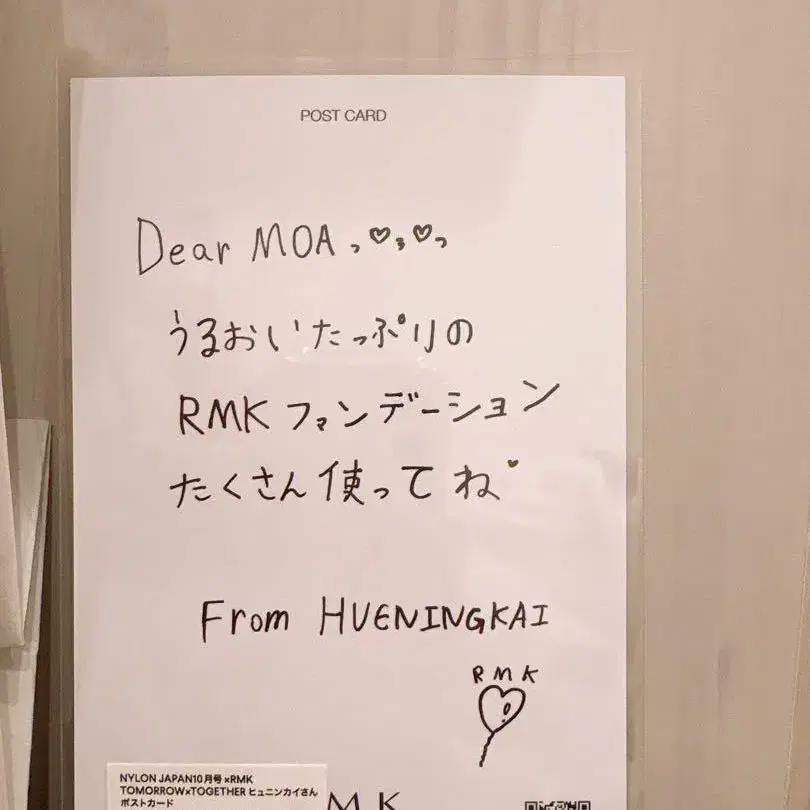 POST CARD
Dear MOA っ♡ぅ♡っ
うるおいたっぷりの
RMK ファンデーション
たくさん使ってね♥
From HUENINGKAI
RMK
NYLON JAPAN10月号×RMK
TOMORROW×TOGETHER ヒュニンカイさん
ポストカード
RMK